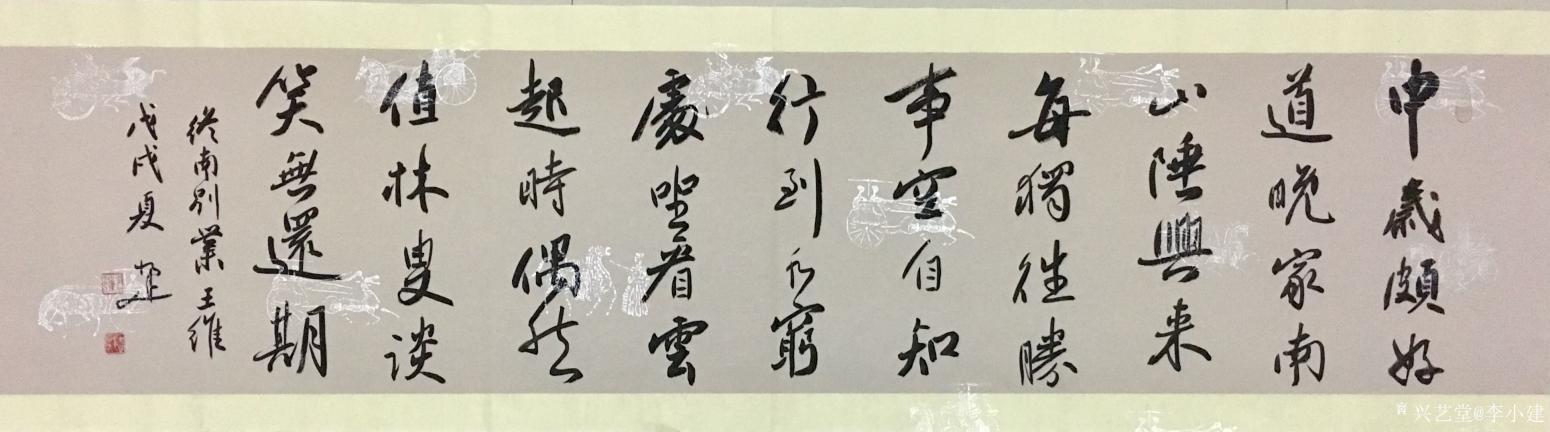 中歲頗好
道晚家南
山陲興来
每獨往勝
事空自知
行到水窮
處坐看雲
起時偶然
值林叟談
笑無還期
终南别業 王維
戊戌夏 建
兴艺堂@李小建